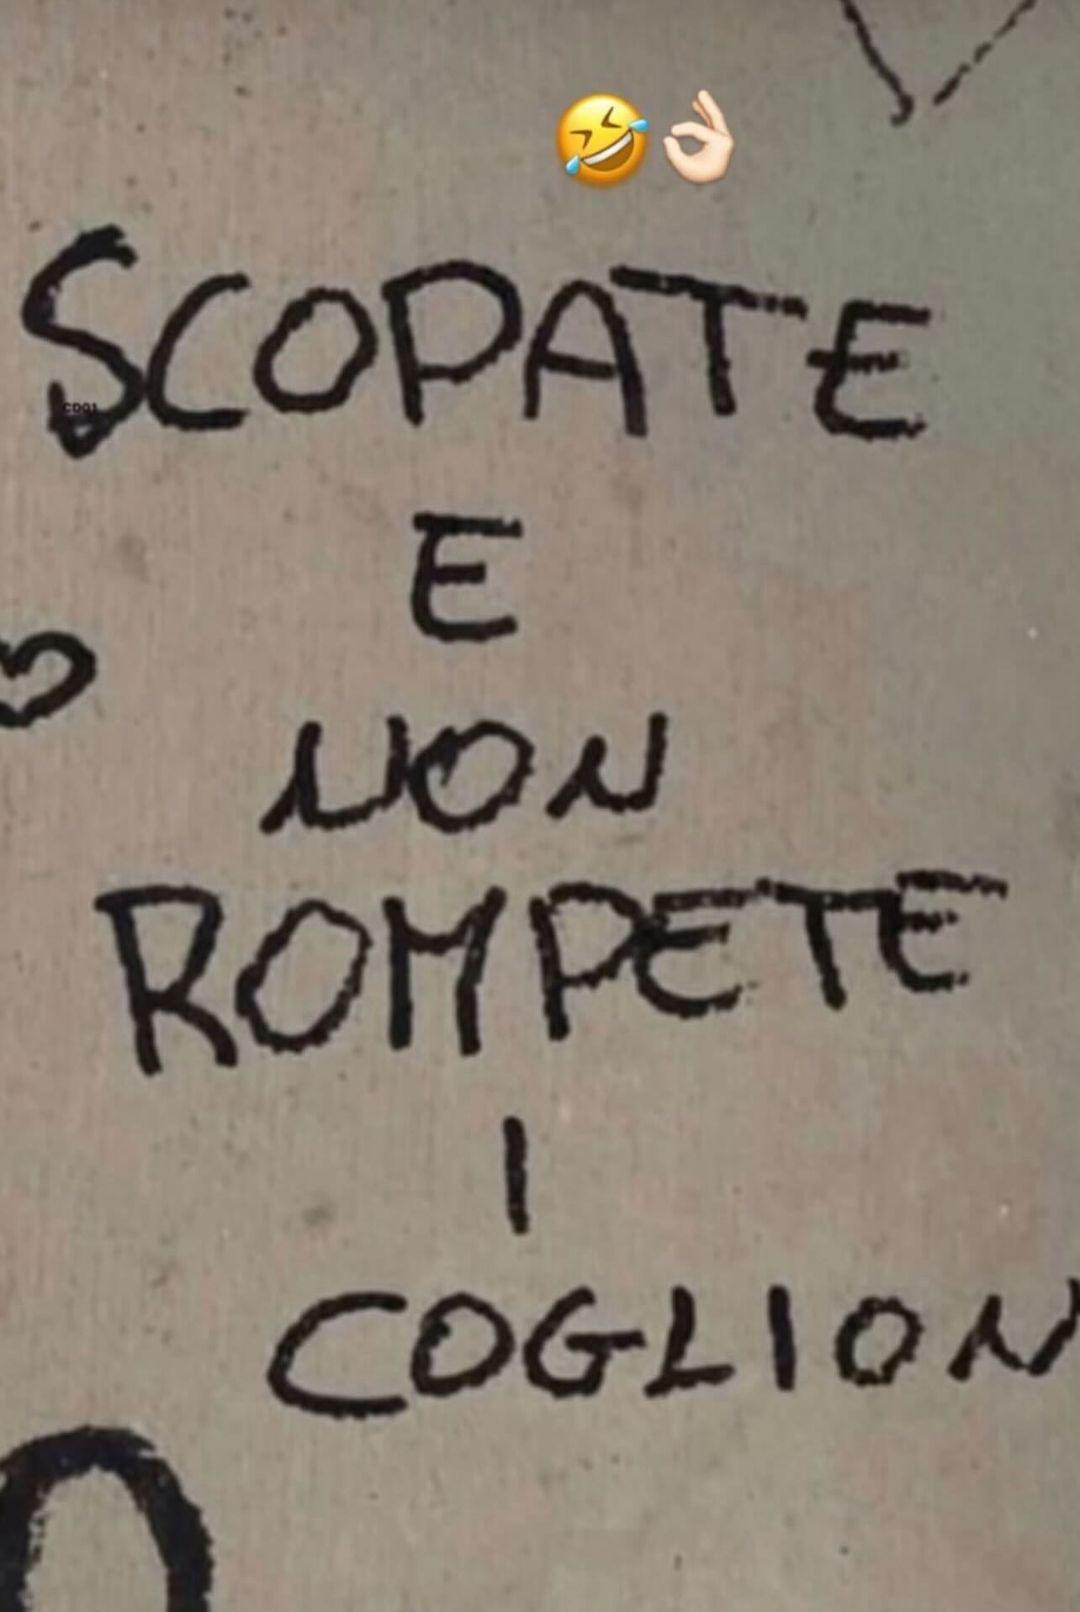 🤣👌🏻
SCOPATE
E
NON
ROMPETE
I
COGLION